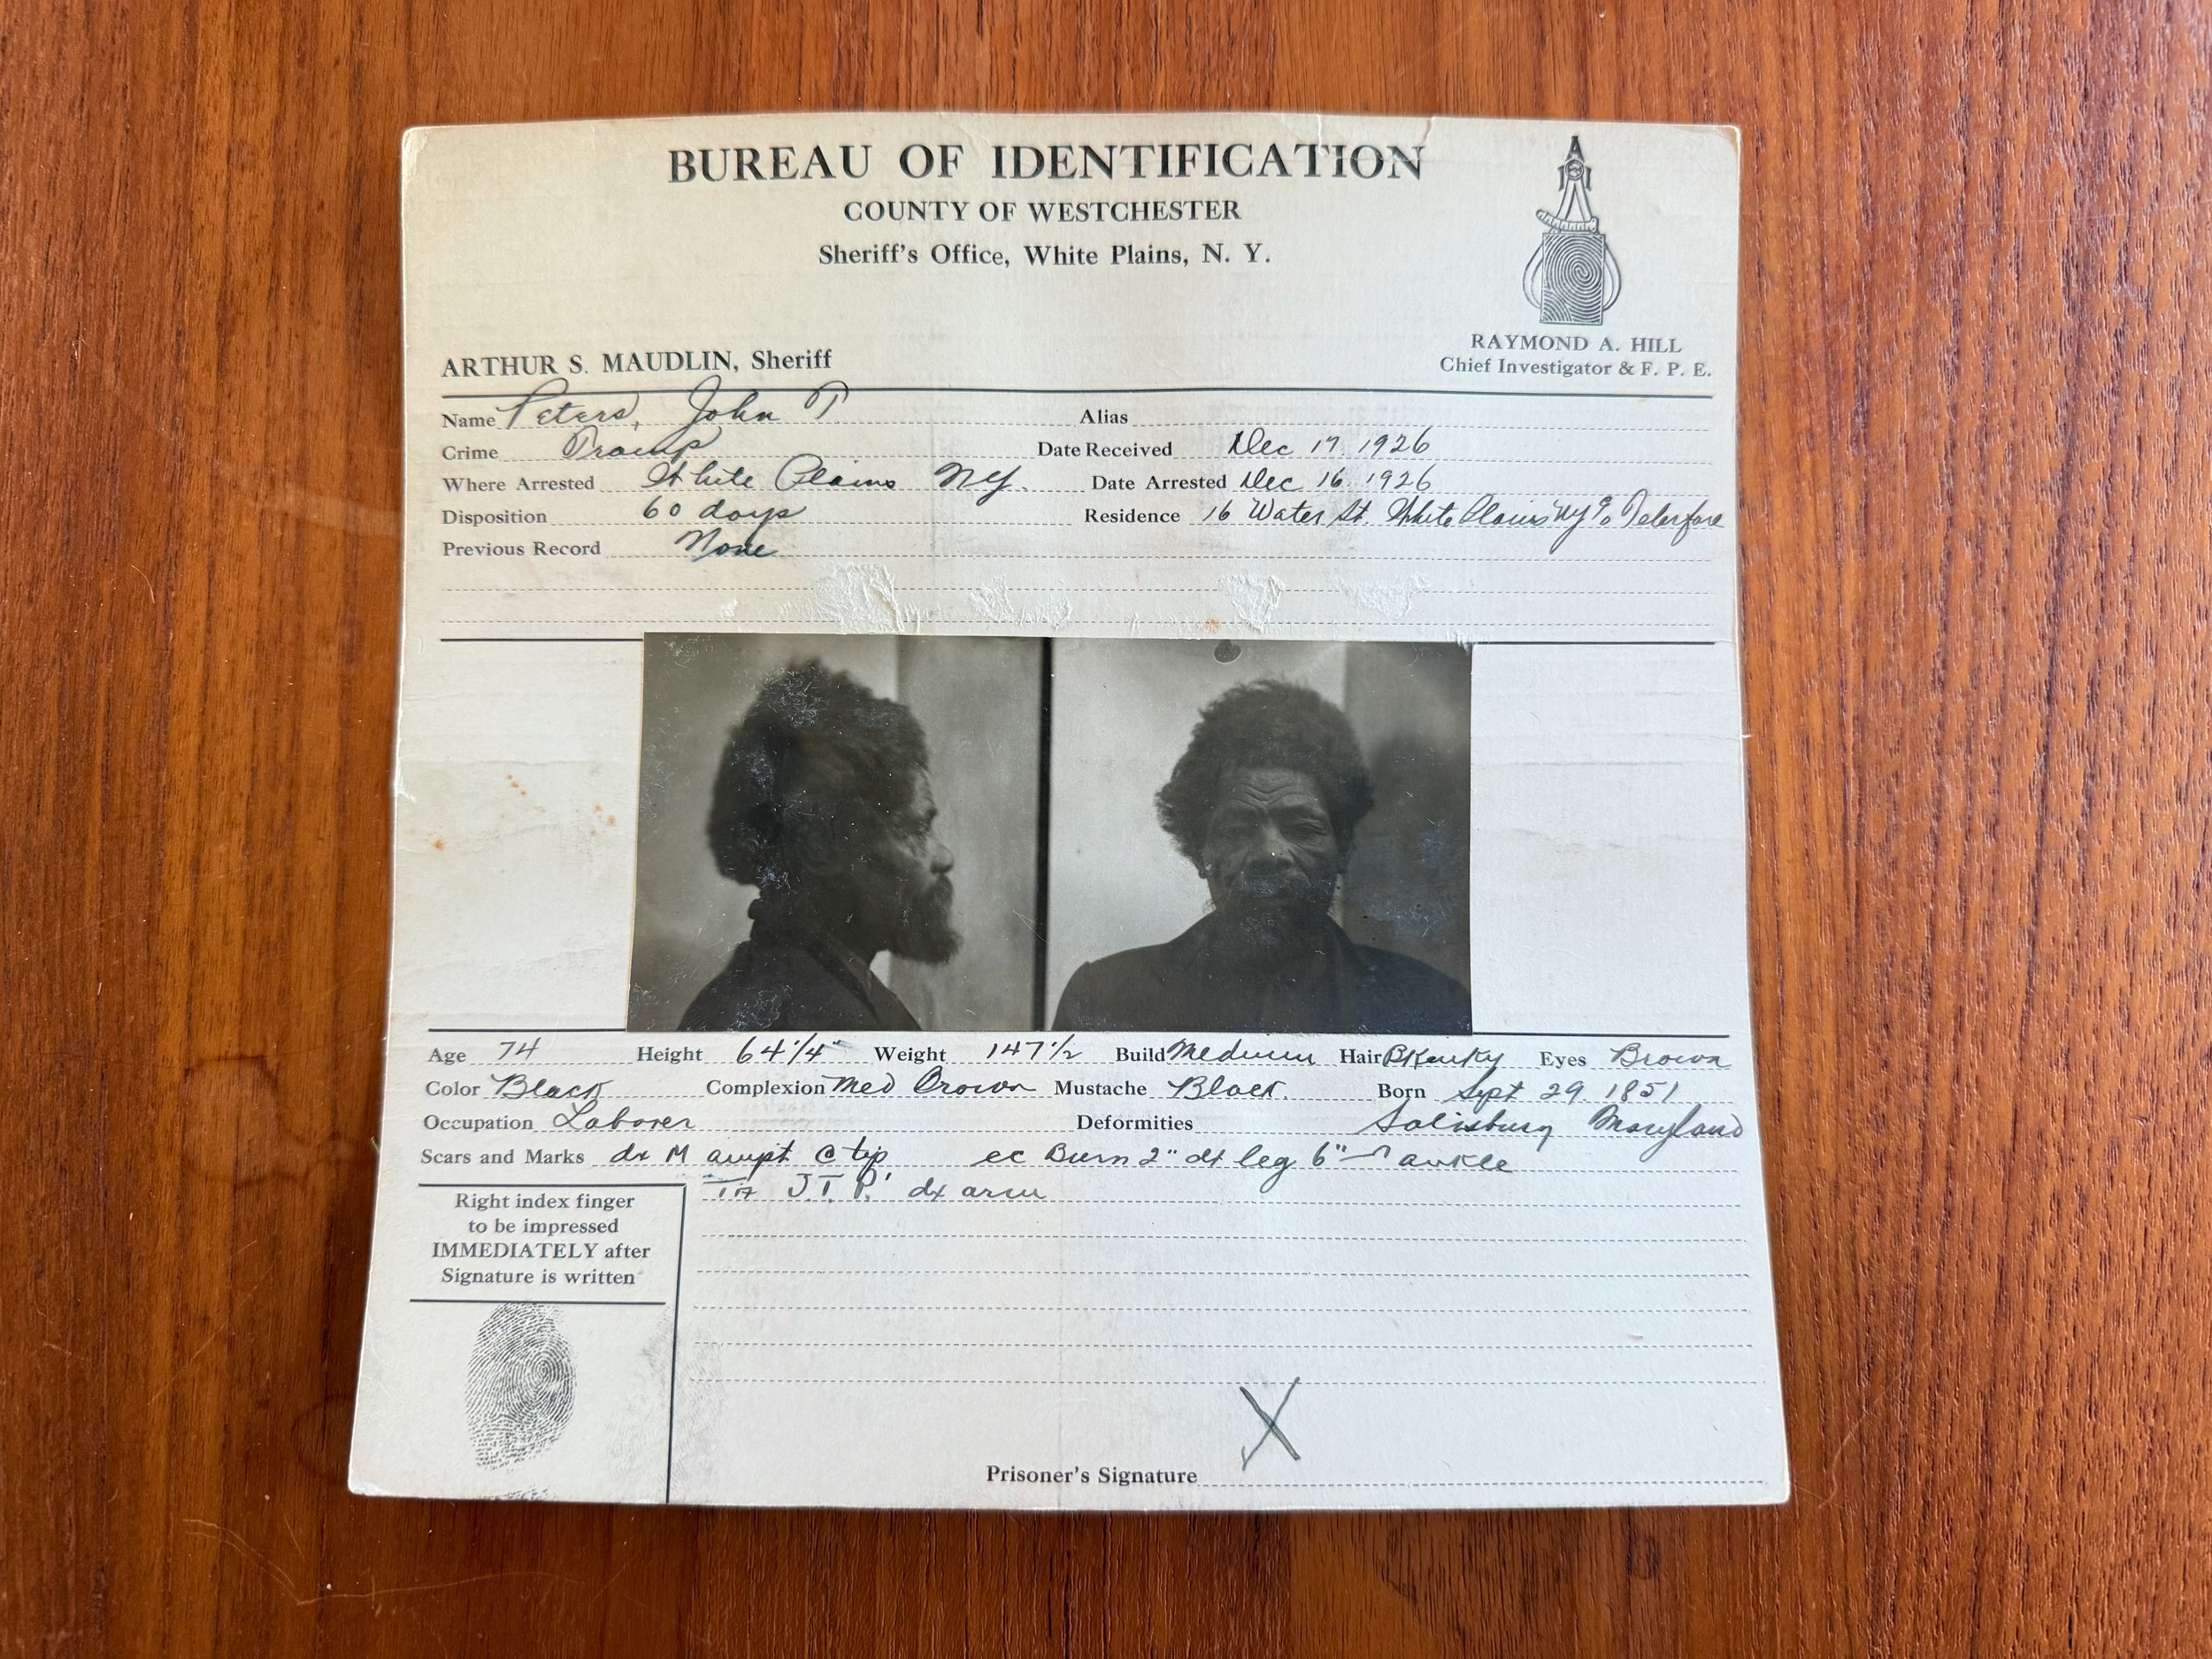 BUREAU OF IDENTIFICATION
COUNTY OF WESTCHESTER
Sheriff's Office, White Plains, N. Y.
ARTHUR S. MAUDLIN, Sheriff
RAYMOND A. HILL
Chief Investigator & F. P. E.
Name Peters, John T Alias
Crime Tramp Date Received Dec 17. 1926
Where Arrested White Plains NY. Date Arrested Dec 16. 1926
Disposition 60 days Residence 16 Water St. White Plains NY c/o
Previous Record None
Age 74 Height 64 1/4" Weight 147 1/2 Build Medium Hair Eyes Brown
Color Black Complexion Med Brown Mustache Black. Born Sept 29. 1851
Occupation Laborer Deformities Salisbury Maryland
Scars and Marks dx M ampt @ tip ec Burn 2" dx leg 6" ankle
J.T.P. dx arm
Right index finger
to be impressed
IMMEDIATELY after
Signature is written
Prisoner's Signature X